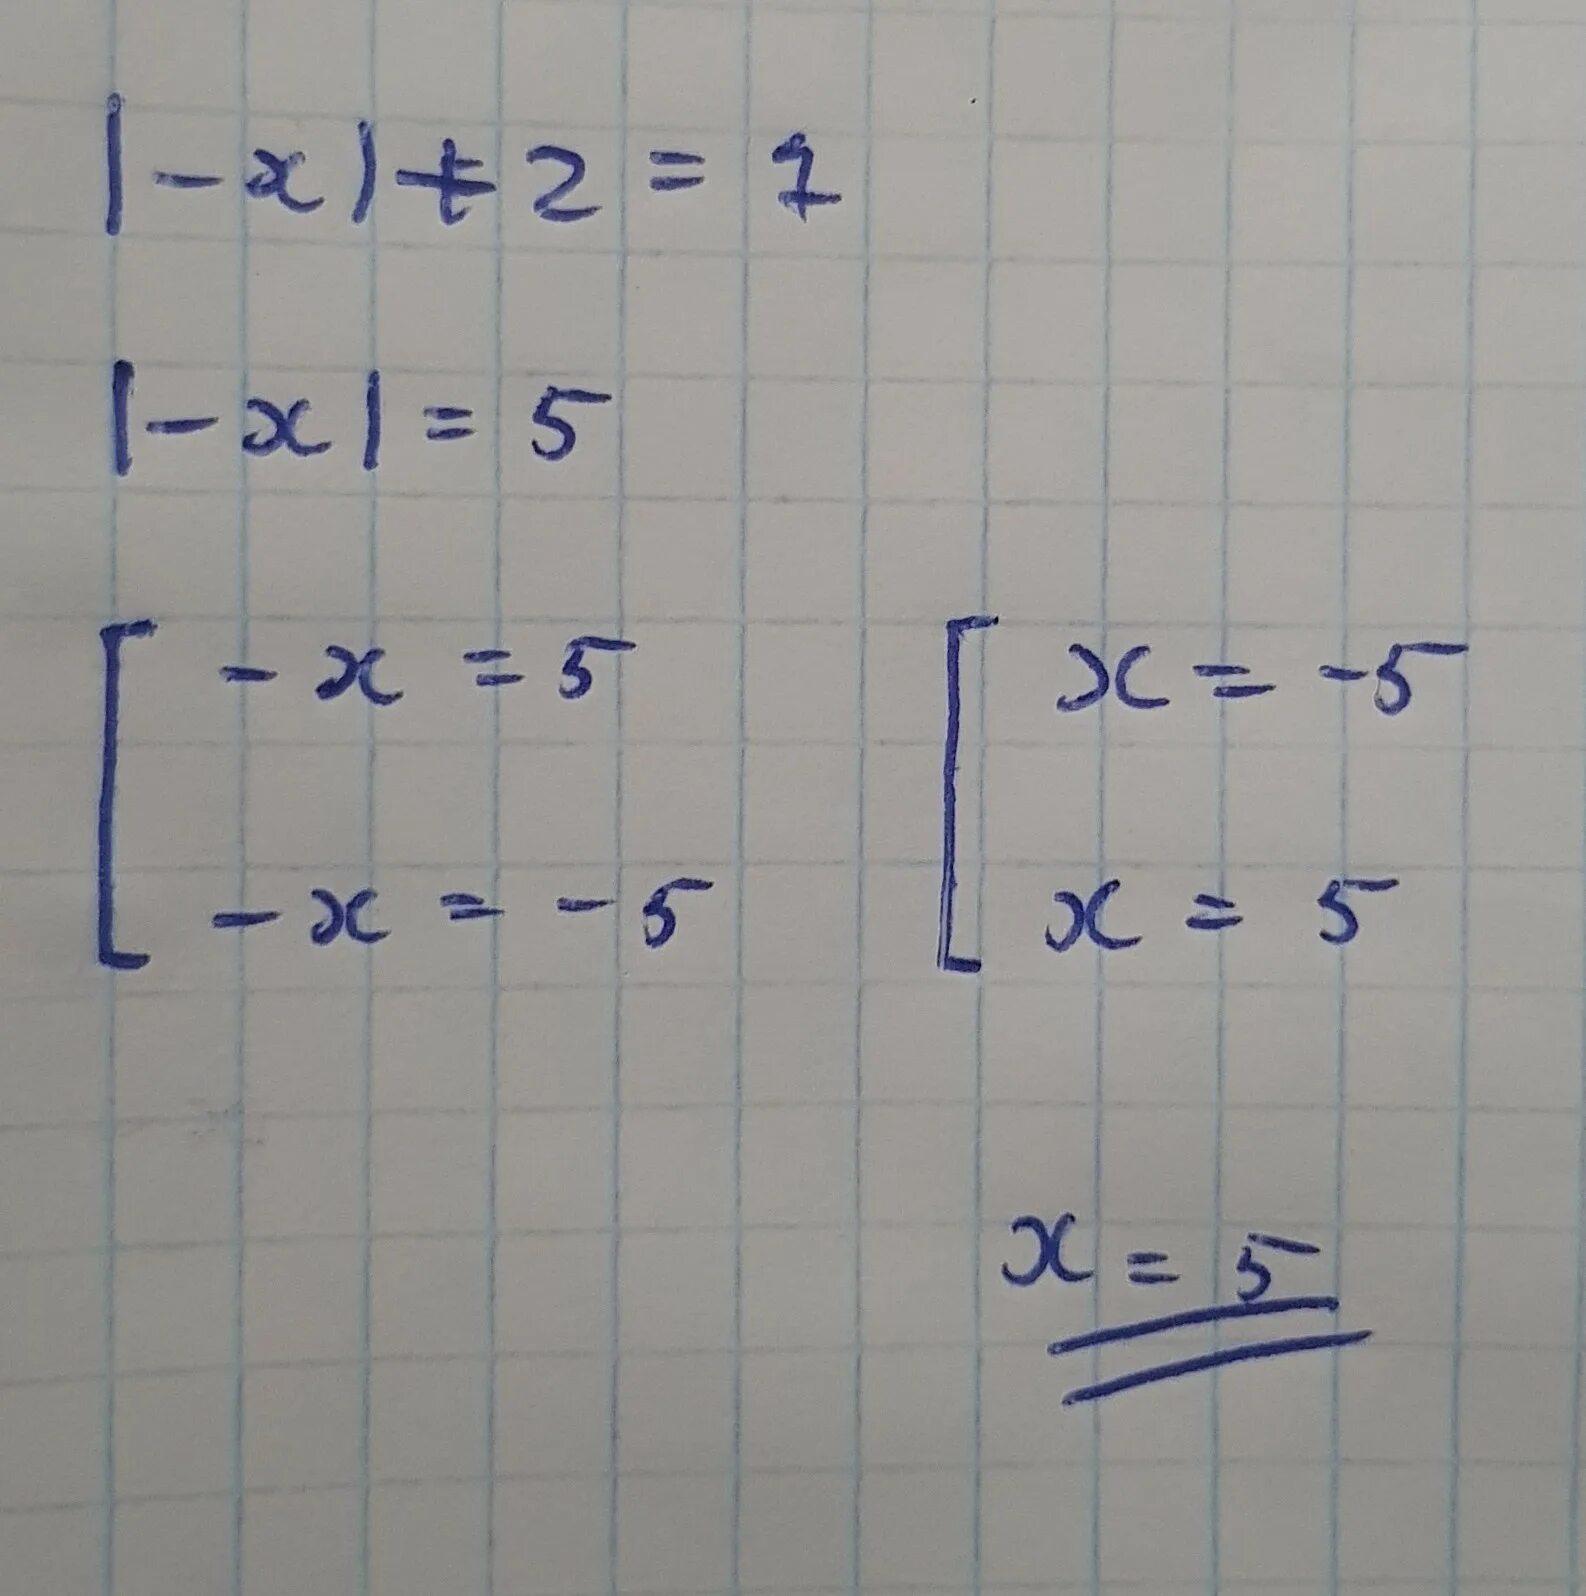 |-x| + 2 = 7
|-x| = 5
[ -x = 5 [ x = -5
-x = -5 x = 5
x = 5